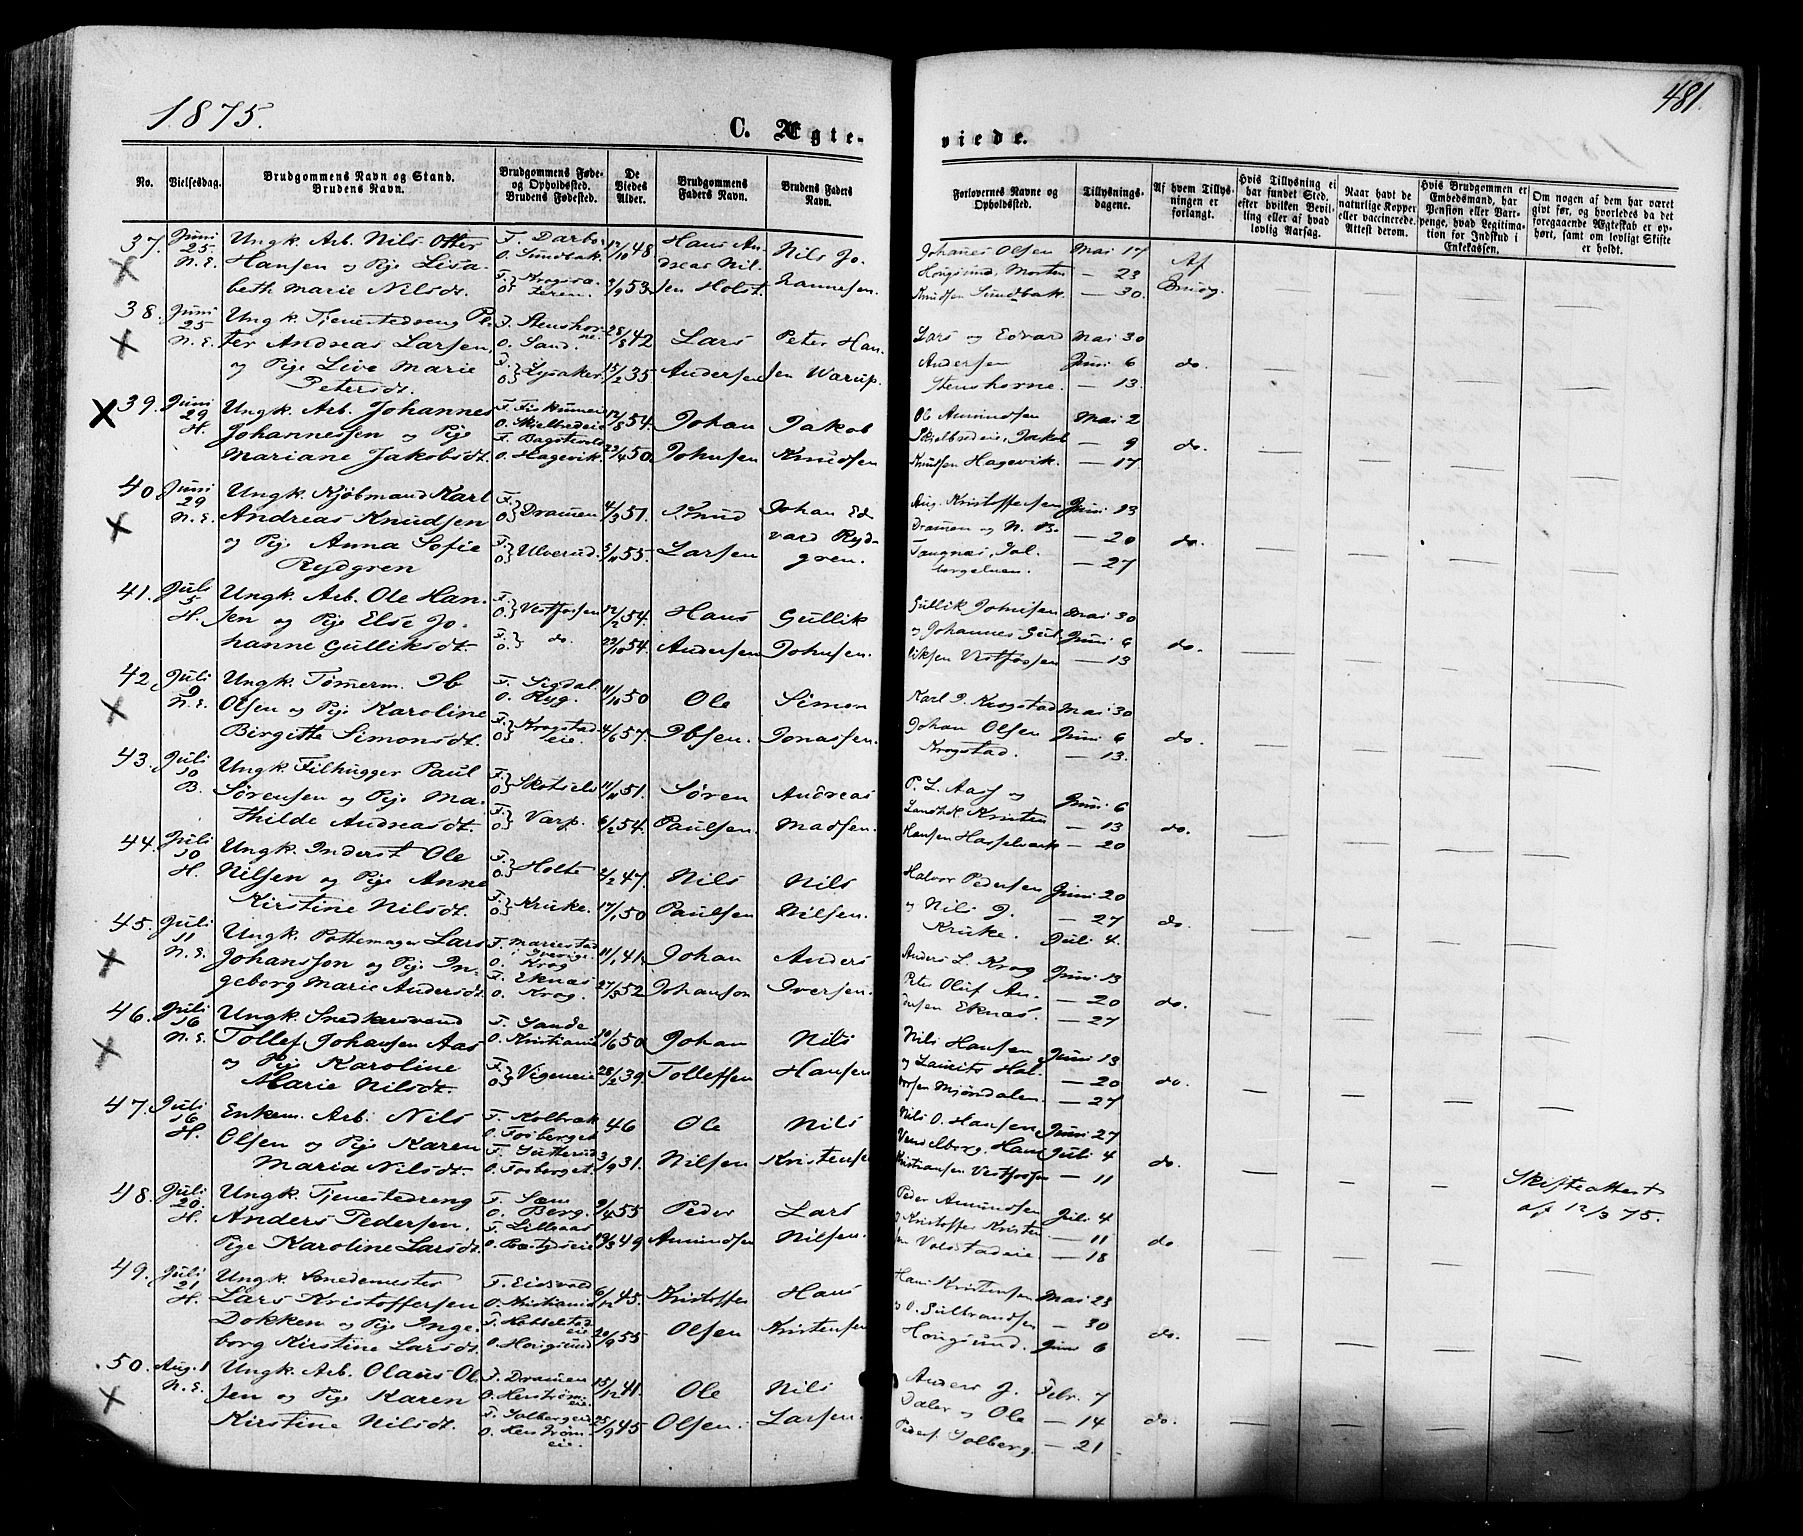 1875.
481.
C. Ægte-
viede.
No.
Vielsesdag.
Brudgommens Navn og Stand.
Brudens Navn.
Brudgommens Føde-
og Opholdssted.
Brudens Fødested.
De
Viedes
Alder.
Brudgommens
Faders Navn.
Brudens Faders
Navn.
Forlovernes Navne og
Opholdssted.
Tillysnings-
dagene.
Af hvem Tillys-
ningen er
forlangt.
Hvis Tillysning ei
har fundet Sted,
efter hvilken Bevil-
ling eller af hvad
lovlig Aarsag.
Naar havt de
naturlige Kopper
eller vaccinerede.
Attest derom.
Hvis Brudgommen er
Embedsmand, har
Pension eller Vart-
penge, hvad Legitima-
tion for Indskud i
Enkekassen.
Om nogen af dem har været
givt før, og hvorledes da det
foregaaende Ægteskab er op-
hørt, samt om lovligt Skifte
er holdt.
37. Juni 25 N. E.
Ungk. Arb. Nils Otter
Hansen og Pige Lisa-
beth Marie Nilsdt.
F. Darbo
O. Sundbak
48
53.
Hans An-
dreas Nil-
sen Holst.
Nils Jo-
hannesen.
Johanes Olsen
Hougsund, Morten
Knudsen Sundbak
Mai 17
— 23
— 30.
Af
38. Juni 25 N. E.
Ungk. Tjenestedreng Pe-
ter Andreas Larsen
og Pige Live Marie
Petersdt.
O. Sand.
Lysaker
28/8 42
15/2 35
Lars
Andersen
Peter Han-
sen Warup.
Lars og Edvard
Andersen
Stenshorne.
Mai 30
Juni 6
— 13
do.
39. Juni 29 H.
Ungk. Arb. Johannes
Johannessen og Pige
Mariane Jakobsdt.
O. Hagevik.
12/8 54.
50.
Johan
Johnsen
Jakob
Knudsen
Ole Amundsen
Skjelbredeie, Jakob
Knudsen Hagevik.
Mai 2
— 9
— 17
do.
40. Juni 29 N. E.
Ungk. Kjøbmand Karl
Andreas Knudsen
og Pige Anna Sofie
Rydgren
Dramen
Ulverud.
4/3 51.
55.
Knud
Larsen
Johan Ed-
vard Ryd-
gren.
Aug. Kristoffersen
Dramen og N. B.
Juni 13
— 20
— 27
do.
41. Juli 5 H.
Ungk. Arb. Ole Han-
sen og Pige Else Jo-
hanne Gulliksdt.
Vestfossen
do.
12/2 54.
22/10 54.
Hans
Andersen
Gullik
Johnsen.
Gullik Johnsen
og Johannes Gul-
liksen Vestfossen
Mai 30
Juni 6
— 13
do.
42. Juli 9 N. E.
Ungk. Tømerm. Ib
Olsen og Pige Karoline
Birgitte Simonsdt.
F. Sigdal
O. Ryg.
Krogstad-
eie.
11/10 50
4/6 57.
Ole
Ibsen.
Simon
Jonassen.
Karl J. Krogstad
Johan Olsen
Krogstad.
Mai 30
Juni 6
— 13.
do.
43. Juli 10 B.
Ungk. Filhugger Paul
Sørensen og Pige Ma-
thilde Andreasdt.
Skotselv
Varp.
51.
6/2 54.
Søren
Paulsen.
Andreas
Madsen.
P. L. Aas og
Landh. Kristen
Hansen Hasselbæk
Juni 6
— 13
— 20
do.
44. Juli 10 H.
Ungk. Inderst Ole
Nilsen og Pige Anne
Kirstine Nilsdt.
Holte
Kruke.
47.
17/1 50
Nils
Paulsen
Nils
Nilsen.
Halvor Pedersen
og Nils J.
Kruke.
Juni 20
— 27
Juli 4.
do.
45. Juli 11 N. E.
Ungk. Pottemager Lars
Johansson og Pige In-
geborg Marie Andersdt.
F. Mariestad
i Sverige.
O. Krog
F. Eknæs
O. Krog.
11/1 41.
52
Johan
Johanson
Anders
Iversen.
Anders L. Krog
Peter Oluf An-
dersen Eknæs.
Juni 13
— 20
— 27
do.
46. Juli 16 N. E.
Ungk. Snedkersvend
Tollef Johansen Aas
og Pige Karoline
Marie Nilsdt.
F. Sande
O. Kristiania
Vigeneie
10/6 50
28/2 39
Johan
Tollefsen
Nils
Hansen
Nils Hansen
og Laurits Hal-
vorsen Mjøndalen
Juni 13
— 20
— 27
do.
47. Juli 16 H.
Enkem. Arb. Nils
Olsen og Pige Karen
Maria Nilsdt.
F. Kolbræk
O. Fosberget
O. Fosberget.
46
3/9 31.
Ole
Nilsen
Nils
Kristensen
Nils O. Hansen
Vendelborg, Hans
Kristiansen Vestfossen
Juni 27
Juli 4
— 11
do.
Skifteattest
af 12/3 75.
48. Juli 20. H.
Ungk. Tjenestedreng
Anders Pedersen.
Pige Karoline Larsdt.
O. Berg.
F. Lilleaas
9/4 55
49
Peder
Amundsen
Lars
Nilsen.
Peder Amundsen
og Kristoffer Kristen-
sen Voldstadeie
Juli 4
— 11
— 18
do.
49. Juli 21 H.
Ungk. Smedemester
Lars Kristoffersen
Dokken og Pige Inge-
borg Kirstine Larsdt.
F. Eidsvold
O. Kristiania
O. Hougsund
6/12 45.
55.
Kristoffer
Olsen
Hans
Kristensen
Hans Kristensen
og O. Gulbrandsen
Hougsund.
Mai 23
— 30
Juni 6
do.
50. Aug. 1 N. E.
Ungk. Arb. Olaus Ol-
sen og Pige Karen
Kirstine Nilsdt.
F. Dramen
O. Herstrøm-
eie.
F. Solbergeie
O. Herstrøm-
eie.
15/12 41.
25/9 45
Ole
Olsen.
Nils
Larsen.
Anders J.
Daler og Ole
Peders. Solberg.
Febr. 7
— 14
— 21
do.